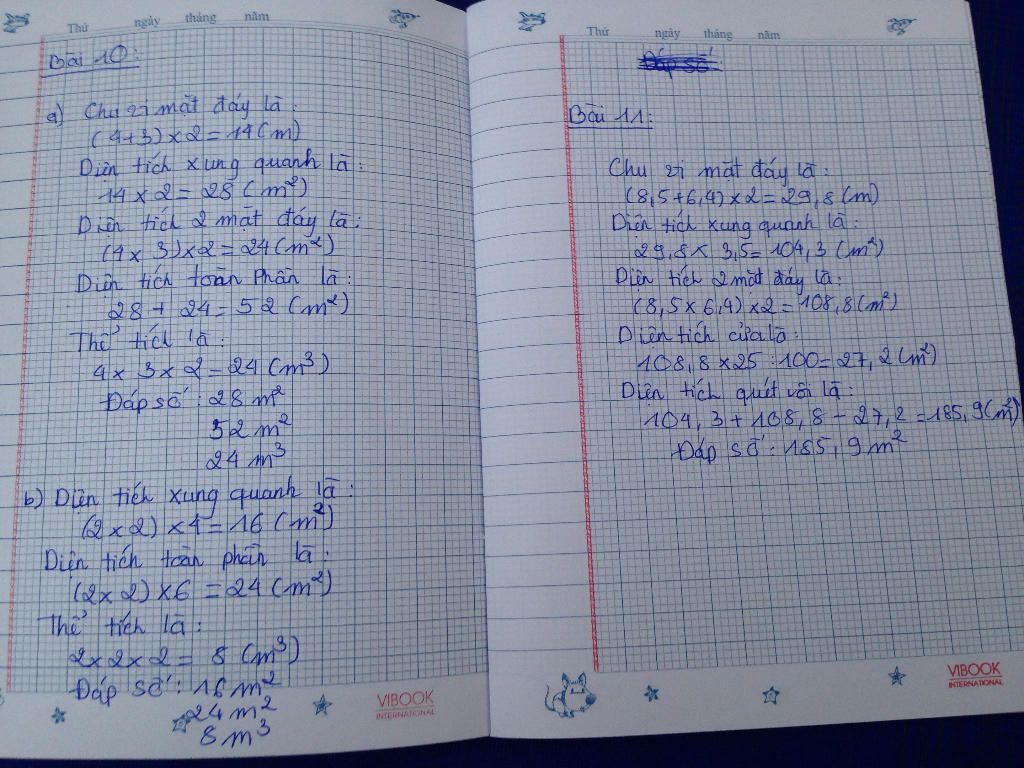 Thứ ngày tháng năm
Bài 10:
a) Chu vi mặt đáy là:
(4+3) x 2 = 14 (m)
Diện tích xung quanh là:
14 x 2 = 28 (m²)
Diện tích 2 mặt đáy là:
(4 x 3) x 2 = 24 (m²)
Diện tích toàn phần là:
28 + 24 = 52 (m²)
Thể tích là:
4 x 3 x 2 = 24 (m³)
Đáp số: 28 m²
52 m²
24 m³
b) Diện tích xung quanh là:
(2 x 2) x 4 = 16 (m²)
Diện tích toàn phần là:
(2 x 2) x 6 = 24 (m²)
Thể tích là:
2 x 2 x 2 = 8 (m³)
Đáp số: 16 m²
24 m²
8 m³
VIBOOK
INTERNATIONAL
Thứ ngày tháng năm
Đáp số
Bài 11:
Chu vi mặt đáy là:
(8,5+6,4) x 2 = 29,8 (m)
Diện tích xung quanh là:
29,8 x 3,5 = 104,3 (m²)
Diện tích 2 mặt đáy là:
(8,5 x 6,4) x 2 = 108,8 (m²)
Diện tích cửa là:
108,8 x 25 : 100 = 27,2 (m²)
Diện tích quét vôi là:
104,3 + 108,8 - 27,2 = 185,9 (m²)
Đáp số: 185,9 m²
VIBOOK
INTERNATIONAL